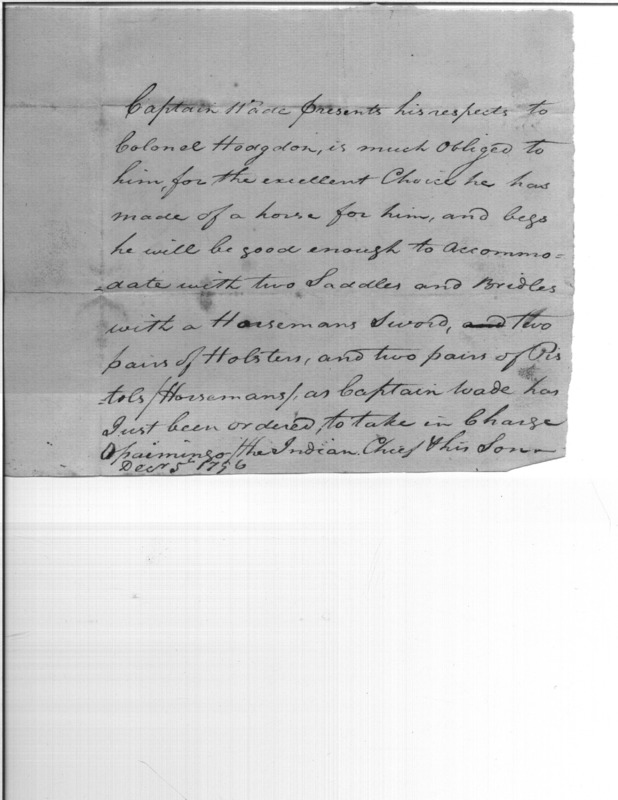 Captain Wade presents his respects to
Colonel Hodgdon, is much Obliged to
him, for the excellent Choice he has
made of a horse for him, and begs
he will be good enough to accommo=
=date with two Saddles and Bridles
with a Horsemans Sword, and two
pairs of Holsters, and two pairs of Pis
=tols /Horsemans/, as Captain Wade has
Just been ordered, to take in Charge
Opaimingo /the Indian Chief & his Son
Decr 5 1796